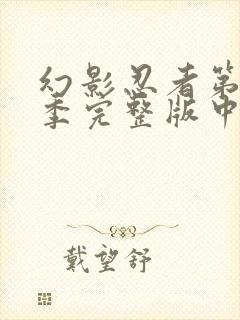 幻影忍者第
季完整版中
戴望舒